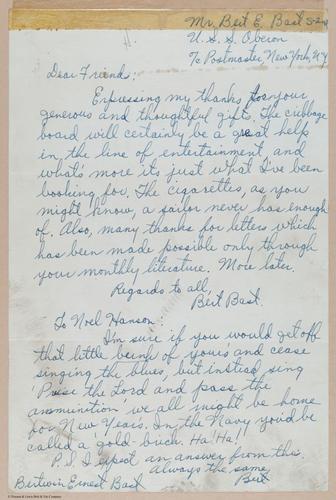 Mr. Bert E. Bast S 2/c
U. S. S. Oberon
℅ Postmaster, New York, N.Y.
Dear Friends:
Expressing my thanks for your
generous and thoughtful gifts. The cribbage
board will certainly be a great help
in the line of entertainment, and
what's more its just what I've been
looking for. The cigarettes, as you
might know, a sailor never has enough
of. Also, many thanks for letters which
has been made possible only through
your monthly literature. More later.
Regards to all,
Bert Bast.
To Noel Hanson:
I'm sure if you would get off
that little of yours and cease
singing the blues, but instead sing
'Praise the Lord and pass the
ammunition we all might be home
for New Years. In the Navy you'd be
called a 'gold-brick. Ha! Ha!
P.S. I expect an answer from this.
Always the same,
Bert
Bertwin Ernest Bast